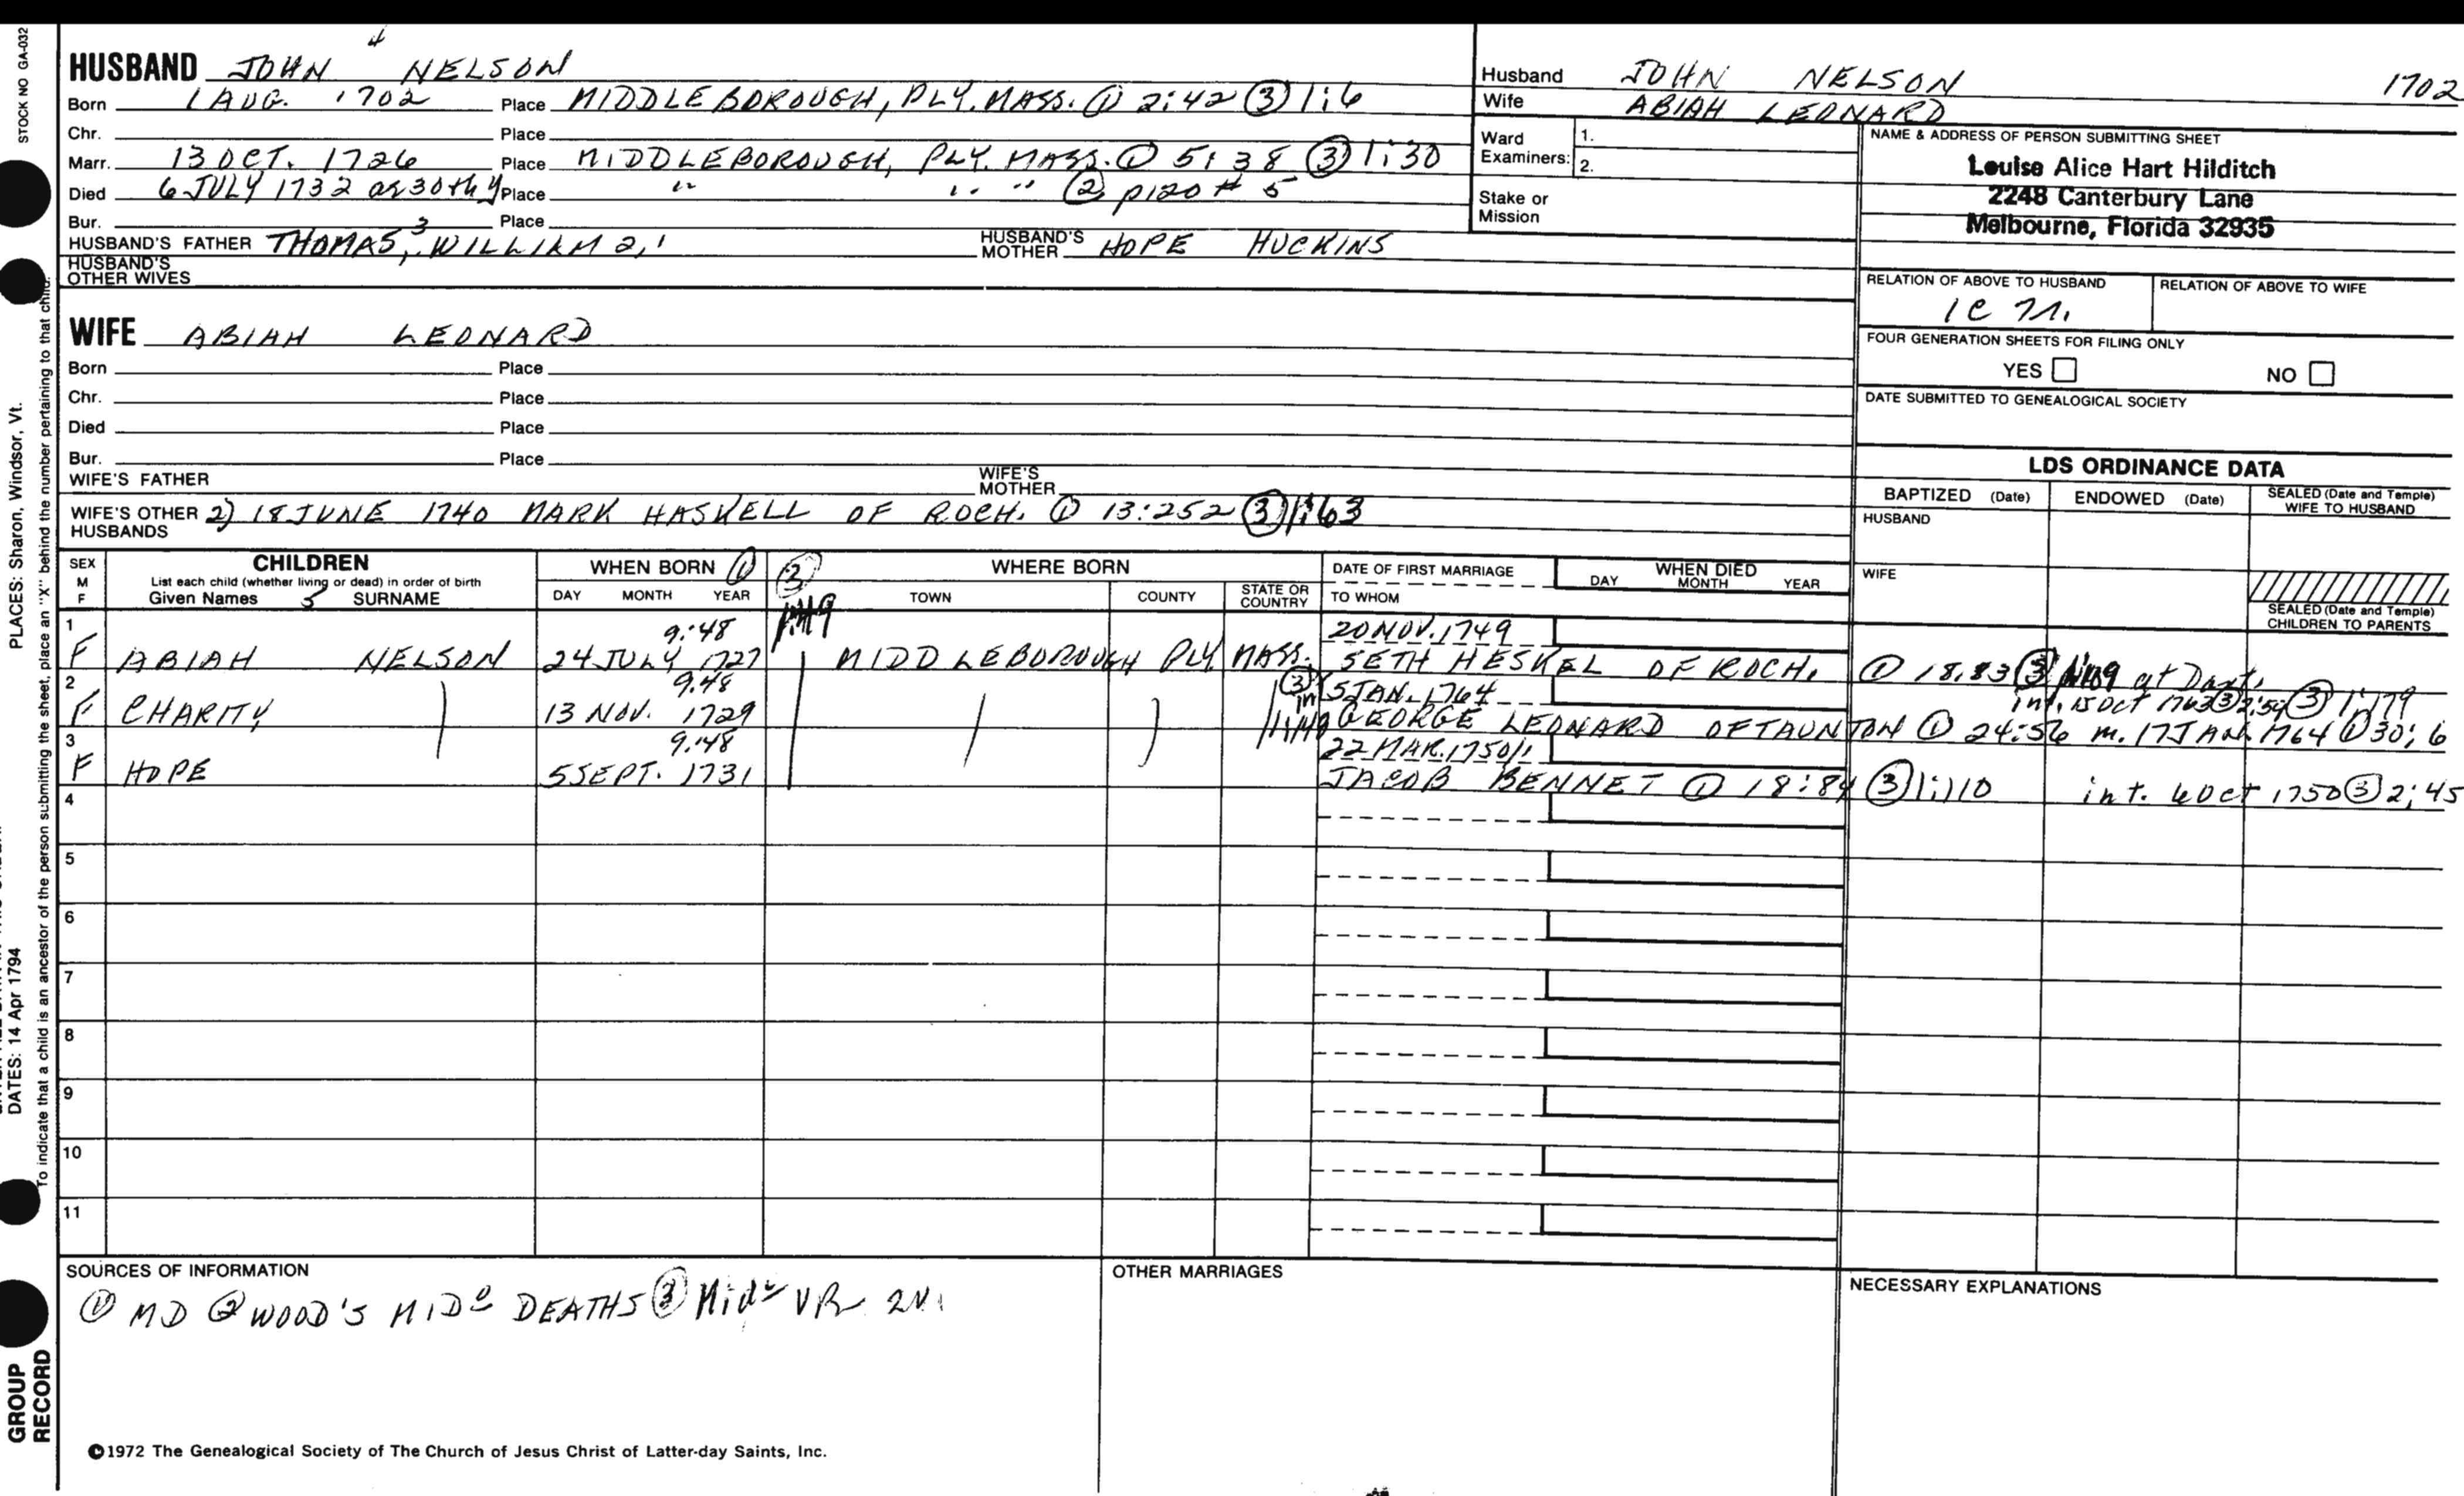 STOCK NO GA-032
HUSBAND JOHN 4 NELSON
Born 1 AUG. 1702 Place MIDDLEBOROUGH, PLY. MASS. ① 2:42 ③ 1:6
Chr. Place
Marr. 13 OCT. 1726 Place MIDDLEBOROUGH, PLY. MASS. ① 5:38 ③ 1:30
Died 6 JULY 1732 ae 30th y Place " " " ② p120 # 5
Bur. Place
HUSBAND'S FATHER THOMAS 3, WILLIAM 2, 1 HUSBAND'S MOTHER HOPE HUCKINS
HUSBAND'S OTHER WIVES
Husband JOHN NELSON 1702
Wife ABIAH LEONARD
Ward Examiners: 1.
2.
Stake or Mission
NAME & ADDRESS OF PERSON SUBMITTING SHEET
Louise Alice Hart Hilditch
2248 Canterbury Lane
Melbourne, Florida 32935
RELATION OF ABOVE TO HUSBAND RELATION OF ABOVE TO WIFE
FOUR GENERATION SHEETS FOR FILING ONLY
YES NO
DATE SUBMITTED TO GENEALOGICAL SOCIETY
WIFE ABIAH LEONARD
Born Place
Chr. Place
Died Place
Bur. Place
WIFE'S FATHER WIFE'S MOTHER
WIFE'S OTHER HUSBANDS 2) 18 JUNE 1740 MARK HASKELL OF ROCH. ① 13:252 ③ 1:63
LDS ORDINANCE DATA
BAPTIZED (Date) ENDOWED (Date) SEALED (Date and Temple) WIFE TO HUSBAND
HUSBAND
WIFE
SEALED (Date and Temple) CHILDREN TO PARENTS
SEX M F
CHILDREN
List each child (whether living or dead) in order of birth
Given Names 5 SURNAME
WHEN BORN ① ③
DAY MONTH YEAR
WHERE BORN
TOWN COUNTY STATE OR COUNTRY
DATE OF FIRST MARRIAGE
TO WHOM
WHEN DIED
DAY MONTH YEAR
1 9:48 20 NOV. 1749
F ABIAH NELSON 24 JULY 1727 MIDDLEBOROUGH PLY MASS. SETH HESKEL OF ROCH. ① 18.83 ③ at Dart.
2 9.48 ③ 5 JAN. 1764 int. 15 Oct 1763 ③ 2:59 ③ 1:179
F CHARITY 13 NOV. 1729 GEORGE LEONARD OF TAUNTON ① 24:56 m. 17 JAN. 1764 ① 30:6
3 9:48 22 MAR. 1750/1
F HOPE 5 SEPT. 1731 JACOB BENNET ① 18:84 ③ 1:110 int. 6 Oct 1750 ③ 2:45
4
5
6
7
8
9
10
11
SOURCES OF INFORMATION
① MD ② WOOD'S MIDo DEATHS ③ Mido VR 2V.
OTHER MARRIAGES
NECESSARY EXPLANATIONS
©1972 The Genealogical Society of The Church of Jesus Christ of Latter-day Saints, Inc.
PLACES: Sharon, Windsor, Vt.
DATES: 14 Apr 1794
To indicate that a child is an ancestor of the person submitting the sheet, place an "X" behind the number pertaining to that child.
GROUP
RECORD